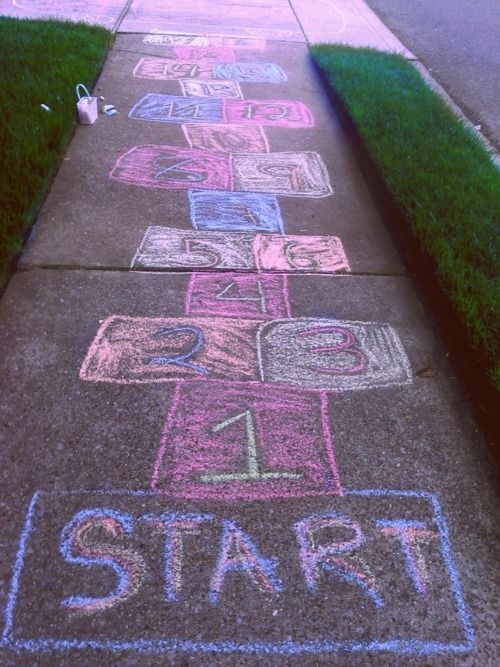 START
1
2 3
4
5 6
7
8 9
10
11 12
13